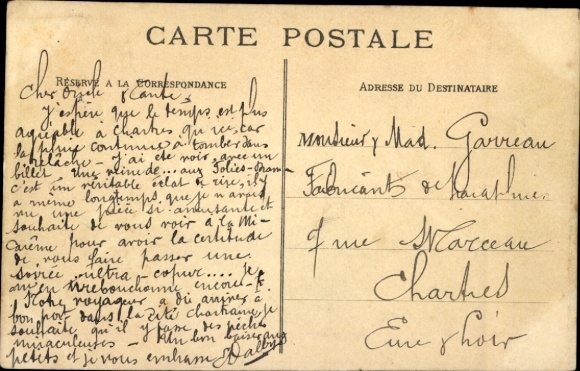 CARTE POSTALE
RÉSERVÉ A LA CORRESPONDANCE
Cher Oncle & Tante,
J'espère que le temps est plus
agréable à Chartres qu'ici, car
la pluie continue à tomber sans
relâche - J'ai été voir, avec un
billet
c'est un véritable éclat de rire, il y
a même longtemps que je n'avais
vu une pièce si amusante et
souhaite de vous voir à la Mi-
Carême pour avoir la certitude
de vous faire passer une
soirée ultra-copur.... Je
m'en encore -
Notre voyageur a dû arriver à
bon port dans la cité chartraine, je
souhaite qu'il y fasse des pêches
miraculeuses - Un bon baiser aux
petits et je vous embrasse
ADRESSE DU DESTINATAIRE
Monsieur & Mad. Garreau
Fabricants de
9 rue Marceau
Chartres
Eure & Loir